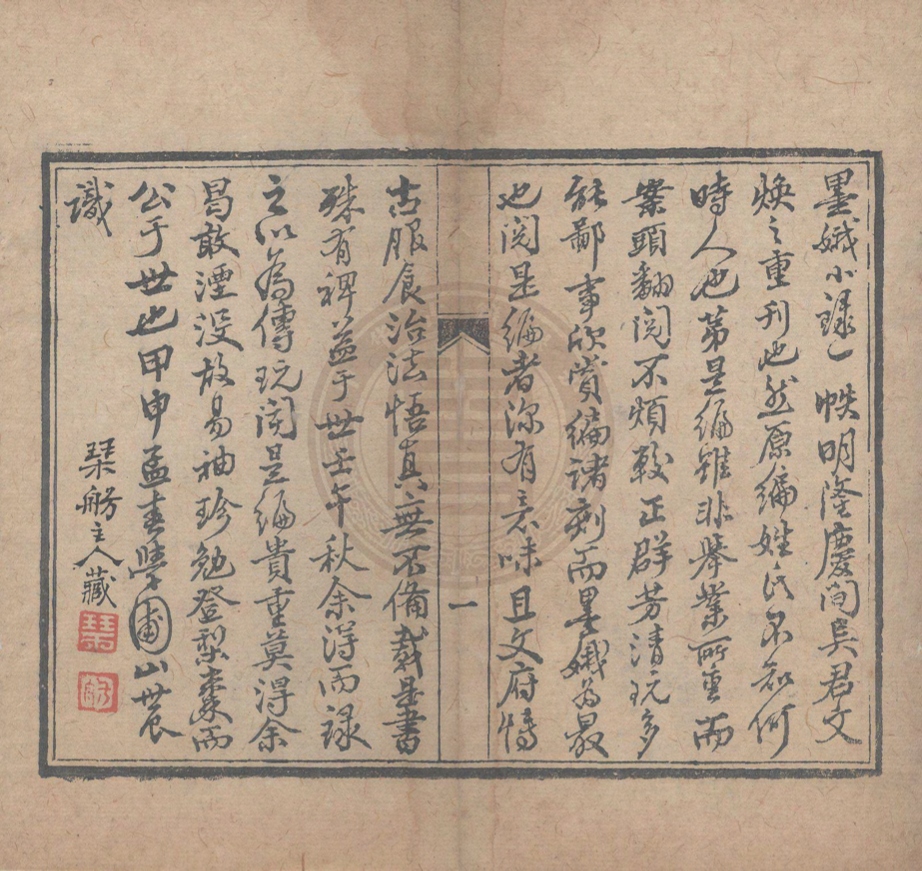 墨娥小錄一帙明隆慶間吳君文
煥之重刊也然原編姓氏不知何
時人也第是編雖非舉業所重而
案頭翻閱不煩較正群芳清玩多
能鄙事欣賞編諸刻而墨娥為最
也閱是編者深有意味且文府博
古服食治法悟真無不備載是書
殊有裨益于世壬午秋余得而錄
之以為傳玩閱是編貴重莫得余
曷敢湮沒故易袖珍勉登梨棗而
公于世也甲申孟春學圃山農
識
琹舫主人藏
一